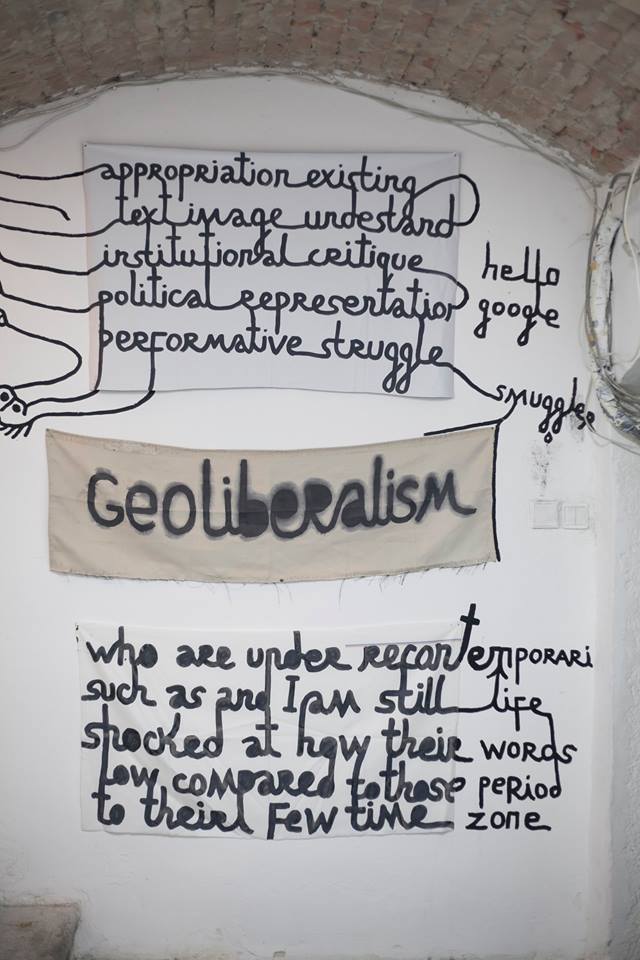 appropriation existing
text image undestand
institutional critique
political representation
performative struggle
hello
google
smuggle
Geoliberalism
who are under recontemporari
such as and I am still life
shocked at how their words
low compared to those period
to their few time zone